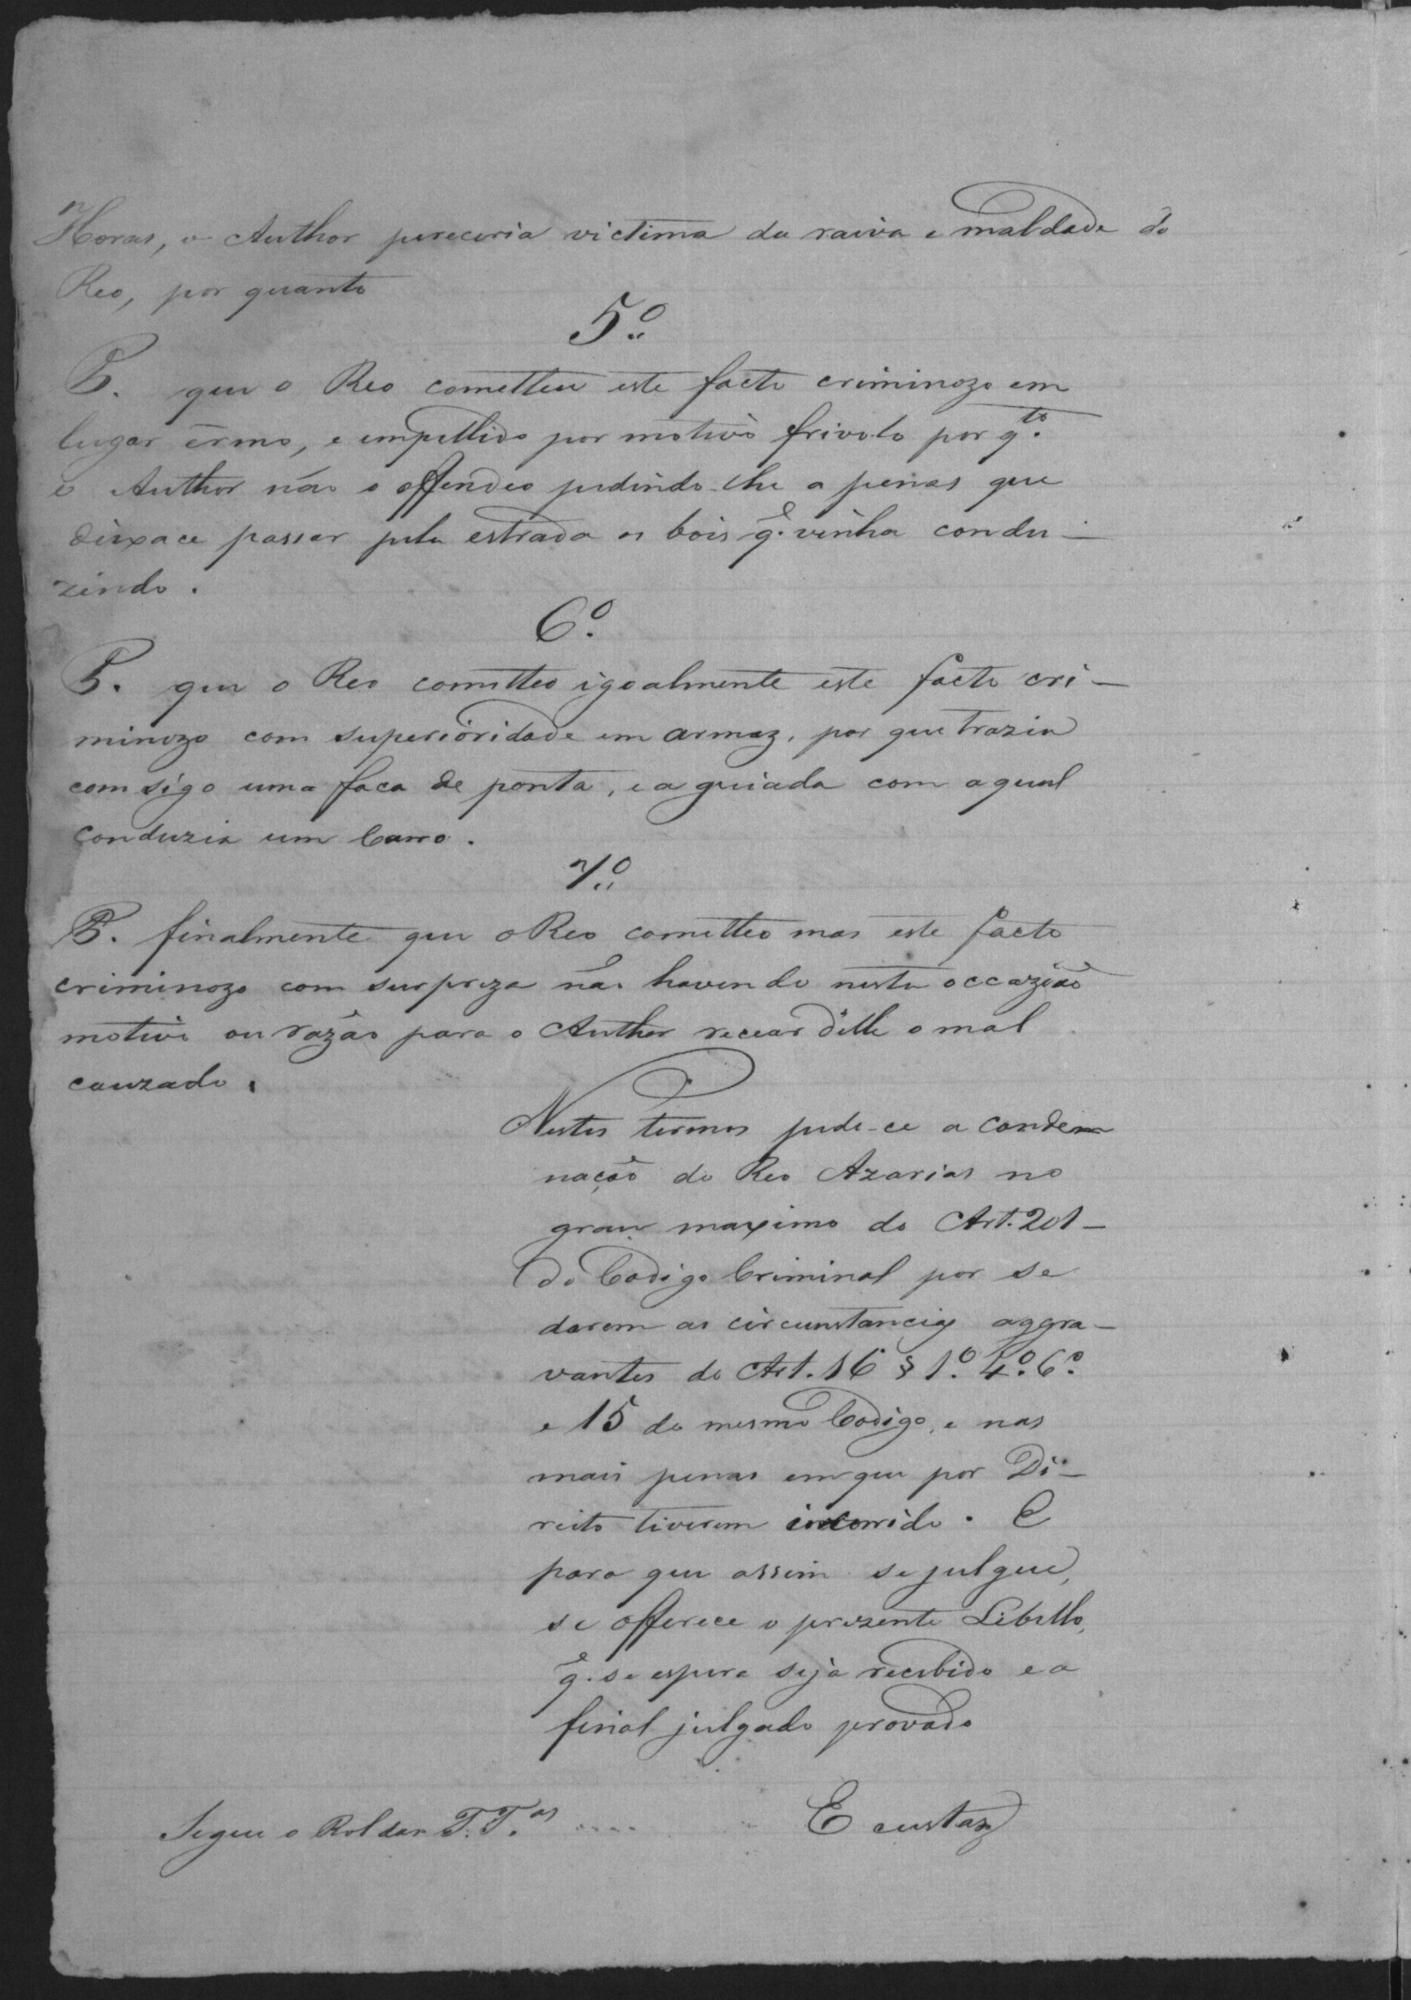 Horas, o Author pereceria victima da raiva e maldade do
Reo, por quanto
5º
P. que o Reo cometteu este facto criminozo em
lugar ermo, e impellido por motivo frivolo por q.to
o Author não o offendeo pedindo-lhe a penas que
deixace passar pela estrada os bois q.e vinha condu-
zindo.
6º
P. que o Reo cometteo igoalmente este facto cri-
minozo com superioridade em armaz, por que trazia
com sigo uma faca de ponta, e a guiada com a qual
conduzia um Carro.
7º
P. finalmente que o Reo cometteo mas este facto
criminozo com surpreza não havendo nesta occazião
motivo ou razão para o Author recear d'elle o mal
cauzado.
Nestes termos pede-ce a condem
nação do Reo Azarias no
grau maximo do Art. 201-
do Codigo Criminal por se
darem as circunstancias aggra-
vantes do Art. 16 § 1º. 4º. 6º.
e 15 do mesmo Codigo, e nas
mais penas em que por Di-
reito tiverem incorrido. E
para que assim se julgue,
se offerece o prezente Libello,
q.e se espera seja recebido e a
final julgado provado
E custaz
Segue o Rol das T.T.as ....